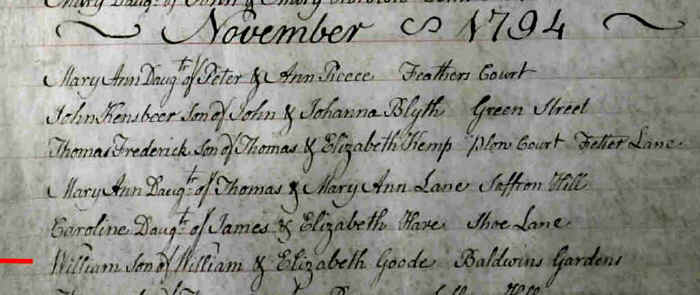 Mary Daugr. of John & Mary
November 1794
Mary Ann Daugtr. of Peter & Ann Reece Feathers Court
John Kensbeer Son of John & Johanna Blyth Green Street
Thomas Frederick Son of Thomas & Elizabeth Kemp Plow Court Fetter Lane
Mary Ann Daugtr. of Thomas & Mary Ann Lane Saffron Hill
Caroline Daugtr. of James & Elizabeth Hare Shoe Lane
William Son of William & Elizabeth Goode Baldwins Gardens